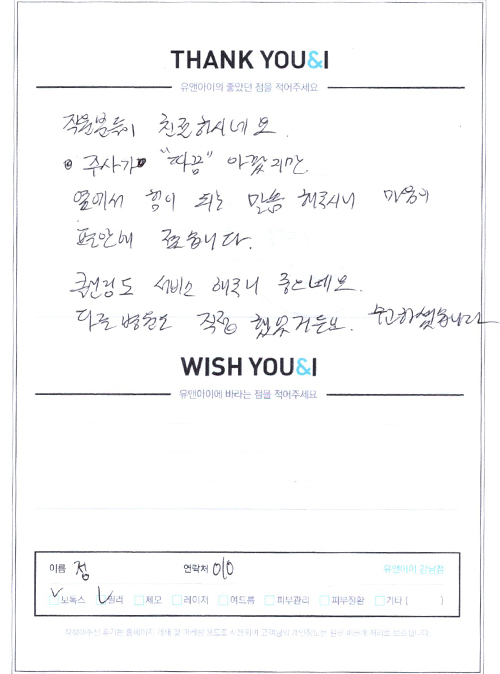 THANK YOU&I
유앤아이의 좋았던 점을 적어주세요
직원분들이 친절하시네요.
주사가 "따끔" 아팠지만
옆에서 힘이 되는 말씀 해주시니 마음이
편안해 졌습니다.
클렌징도 서비스 해주니 좋으네요.
다른 병원은 직접 했었거든요. 수고하셨습니다
WISH YOU&I
유앤아이에 바라는 점을 적어주세요
이름 정 연락처 010 유앤아이 강남점
보톡스 필러 제모 레이저 여드름 피부관리 피부질환 기타 ( )